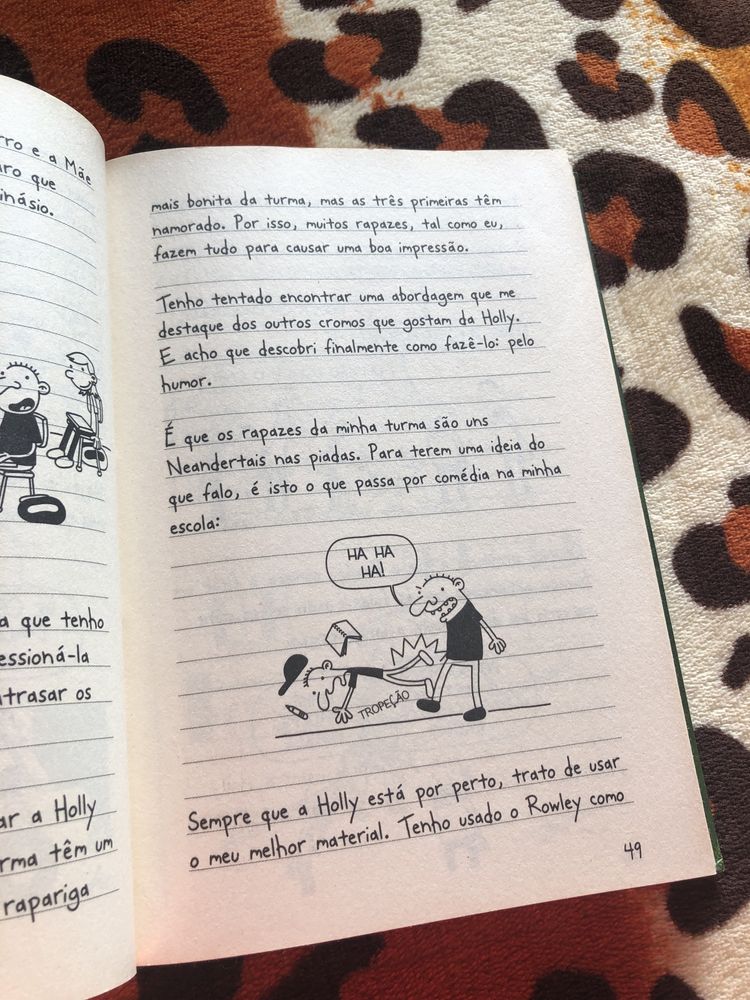 rro e a Mãe
uro que
inásio.
a que tenho
essioná-la
trasar os
ar a Holly
rma têm um
rapariga
mais bonita da turma, mas as três primeiras têm
namorado. Por isso, muitos rapazes, tal como eu,
fazem tudo para causar uma boa impressão.
Tenho tentado encontrar uma abordagem que me
destaque dos outros cromos que gostam da Holly.
E acho que descobri finalmente como fazê-lo: pelo
humor.
É que os rapazes da minha turma são uns
Neandertais nas piadas. Para terem uma ideia do
que falo, é isto o que passa por comédia na minha
escola:
HA HA
HA!
TROPEÇÃO
Sempre que a Holly está por perto, trato de usar
o meu melhor material. Tenho usado o Rowley como
49